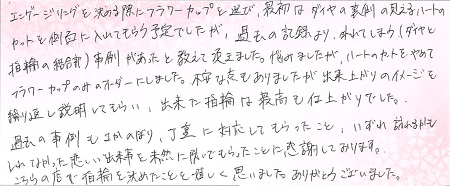 エンゲージリングを決める際にフラワーカップを選び、最初はダイヤの裏側の見えるハートの
カットを側面に入れてもらう予定でしたが、過去の記録より、外れてしまう(ダイヤと
指輪の結合部)事例があったと教えて頂きました。悩みましたが、ハートのカットをやめて
フラワーカップのみのオーダーにしました。不安な点もありましたが出来上がりのイメージを
繰り返し説明してもらい、出来た指輪は最高の仕上がりでした。
過去の事例もさかのぼり、丁寧に対応してもらったこと、いずれ訪れるかも
しれなかった悲しい出来事を未然に防いでもらったことに感謝しております。
こちらの店で指輪を決めたことを嬉しく思いました。ありがとうございました。